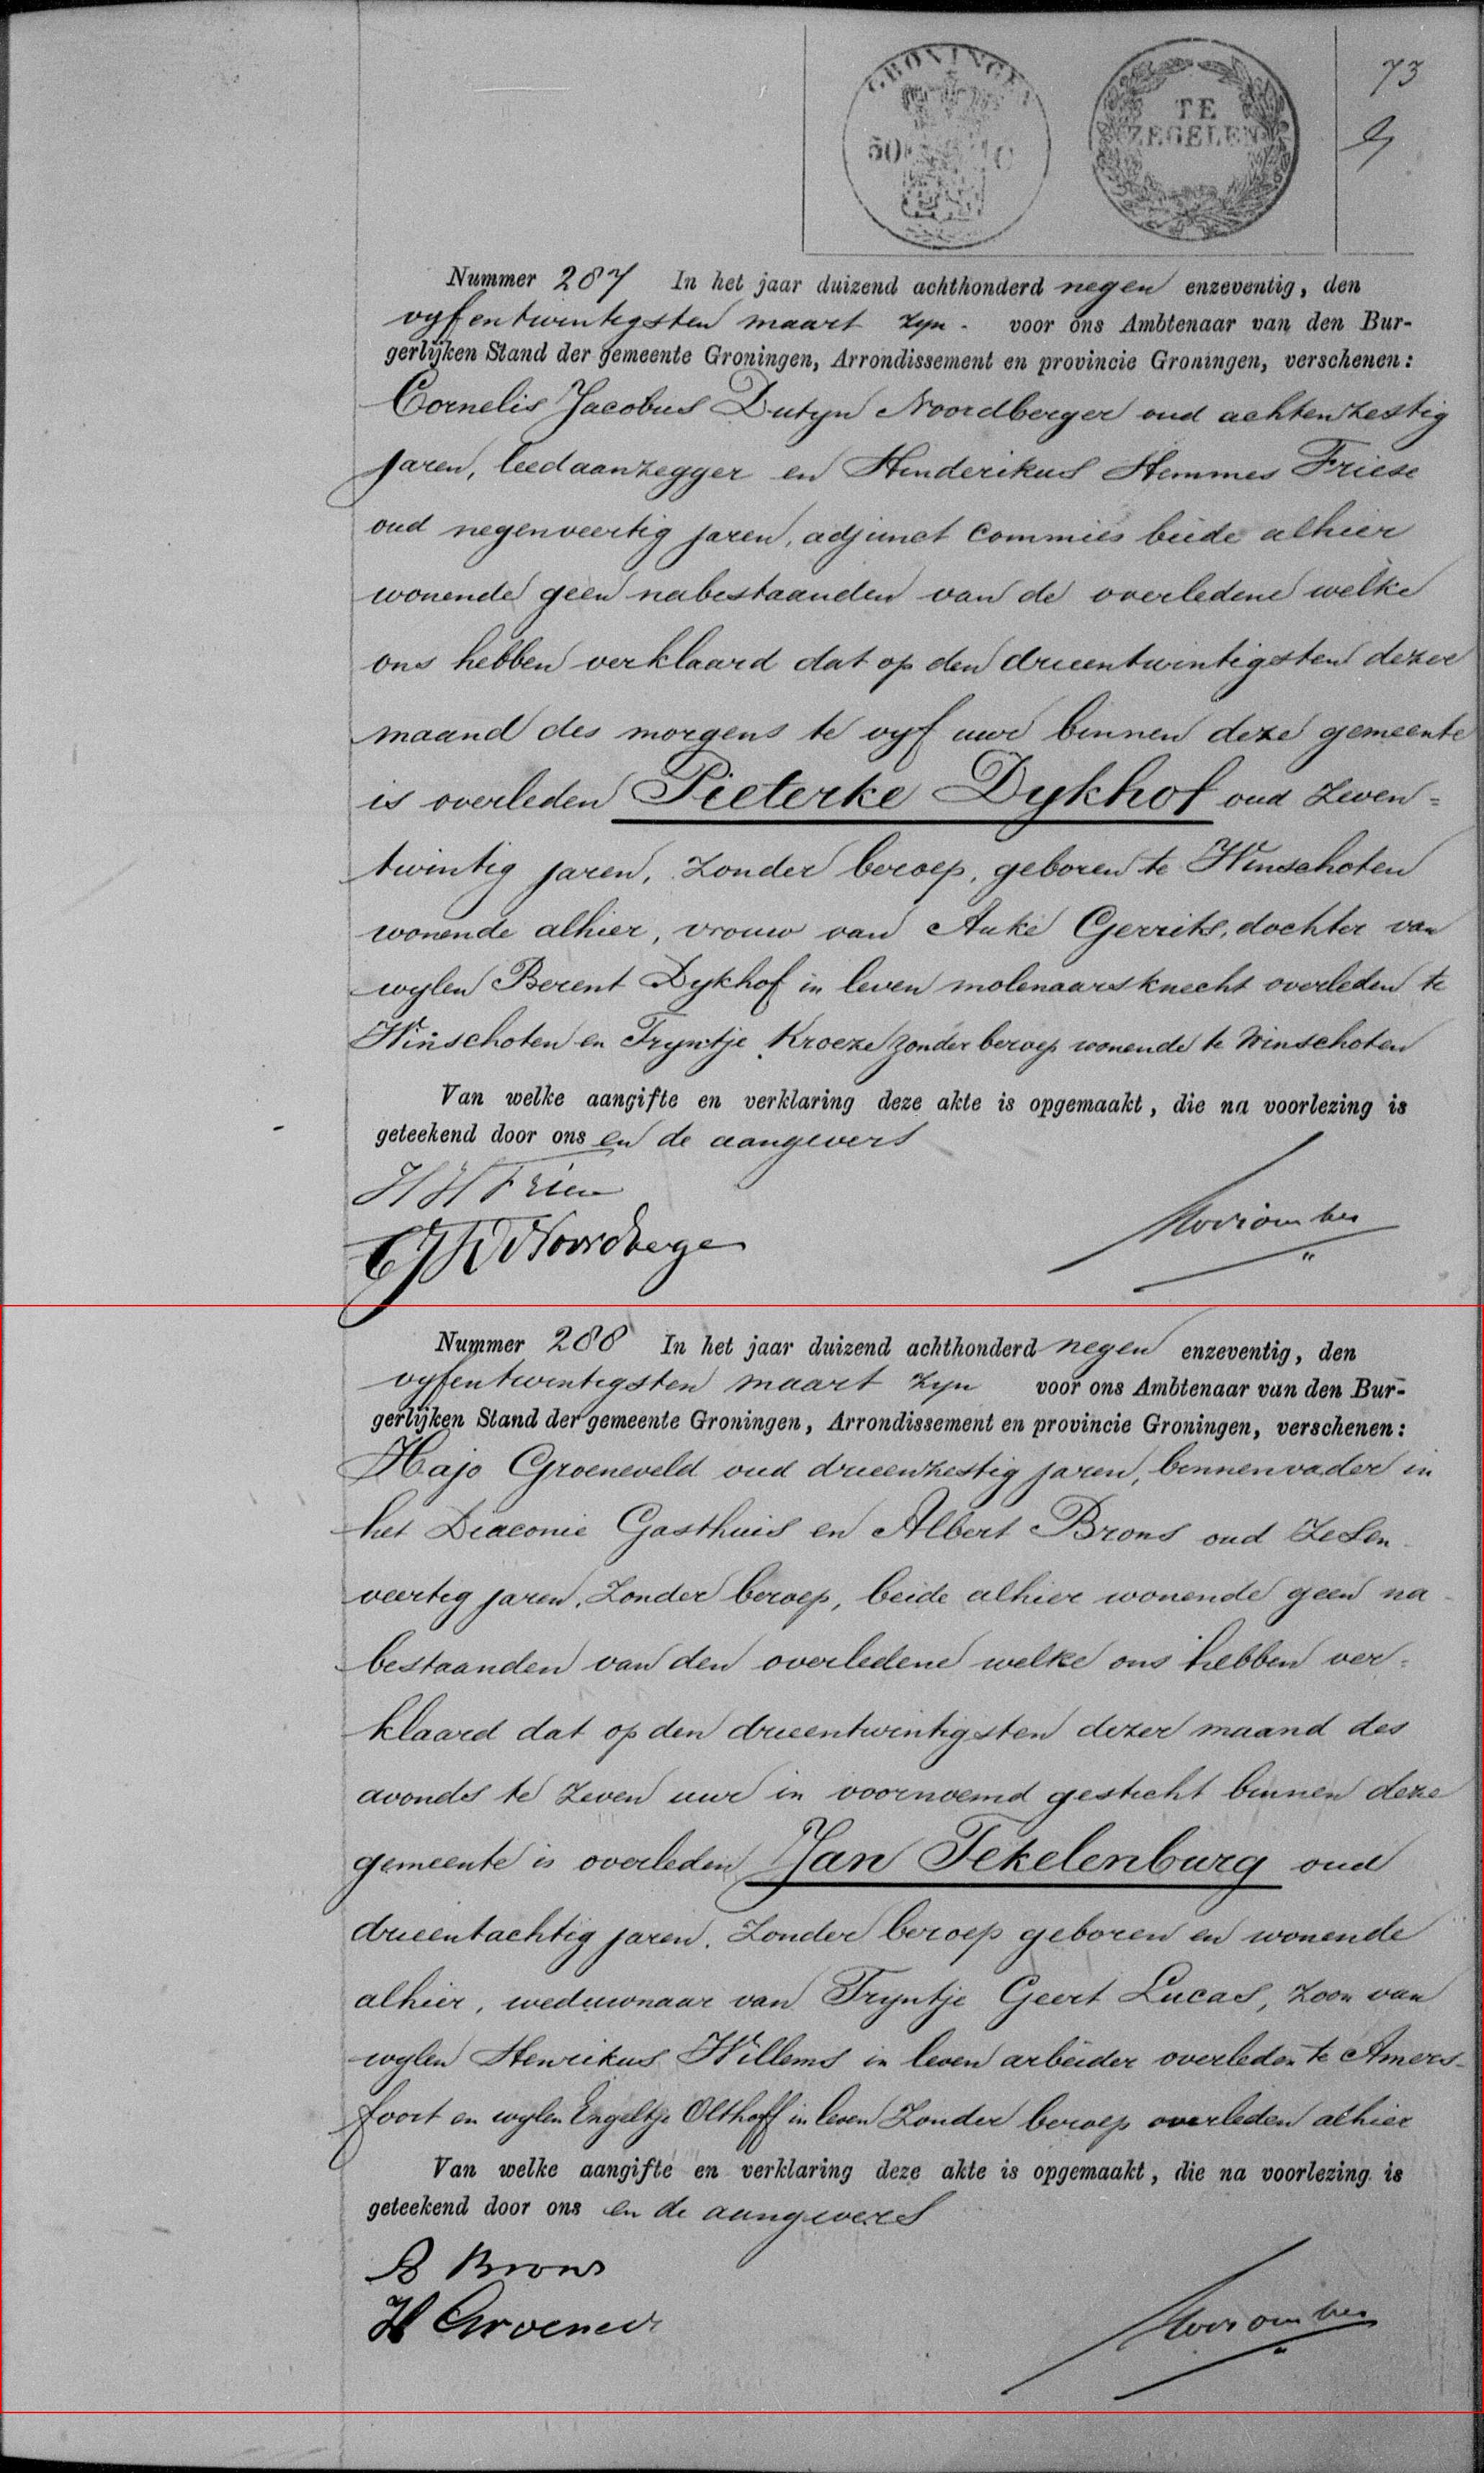 GRONINGEN
50
TE
ZEGELEN
73
Nummer 287 In het jaar duizend achthonderd negen enzeventig, den
vyfentwintigsten maart zyn - voor ons Ambtenaar van den Bur-
gerlijken Stand der gemeente Groningen, Arrondissement en provincie Groningen, verschenen:
Cornelis Jacobus Dutyn Noordberger oud achtenzestig
jaren, leedaanzegger en Hinderikus Hemmes Friese
oud negenveertig jaren, adjunct commies beide alhier
wonende geen nabestaanden van de overledene welke
ons hebben verklaard dat op den drieentwintigsten dezer
maand des morgens te vyf ure binnen deze gemeente
is overleden Pieterke Dykhof oud zeven=
twintig jaren, zonder beroep, geboren te Winschoten
wonende alhier, vrouw van Auke Gerrits, dochter van
wylen Berent Dykhof in leven molenaarsknecht overleden te
Winschoten en Tryntje Kroeze zonder beroep wonende te Winschoten
Van welke aangifte en verklaring deze akte is opgemaakt, die na voorlezing is
geteekend door ons en de aangevers
H H Friese
C J D Noordberger
Nummer 288 In het jaar duizend achthonderd negen enzeventig, den
vyfentwintigsten maart zyn voor ons Ambtenaar van den Bur-
gerlijken Stand der gemeente Groningen, Arrondissement en provincie Groningen, verschenen:
Hajo Groeneveld oud drieenzestig jaren, binnenvader in
het Diaconie Gasthuis en Albert Brons oud zesen
veertig jaren, zonder beroep, beide alhier wonende geen na
bestaanden van den overledene welke ons hebben ver=
klaard dat op den drieentwintigsten dezer maand des
avonds te zeven ure in voornoemd gesticht binnen deze
gemeente is overleden Jan Tekelenburg oud
drieentachtig jaren, zonder beroep geboren en wonende
alhier, weduwnaar van Tryntje Geert Lucas, zoon van
wylen Henrikus Willems in leven arbeider overleden te Amers-
foort en wylen Engeltje Olthoff in leven zonder beroep overleden alhier
Van welke aangifte en verklaring deze akte is opgemaakt, die na voorlezing is
geteekend door ons en de aangevers
A Brons
H Groenev